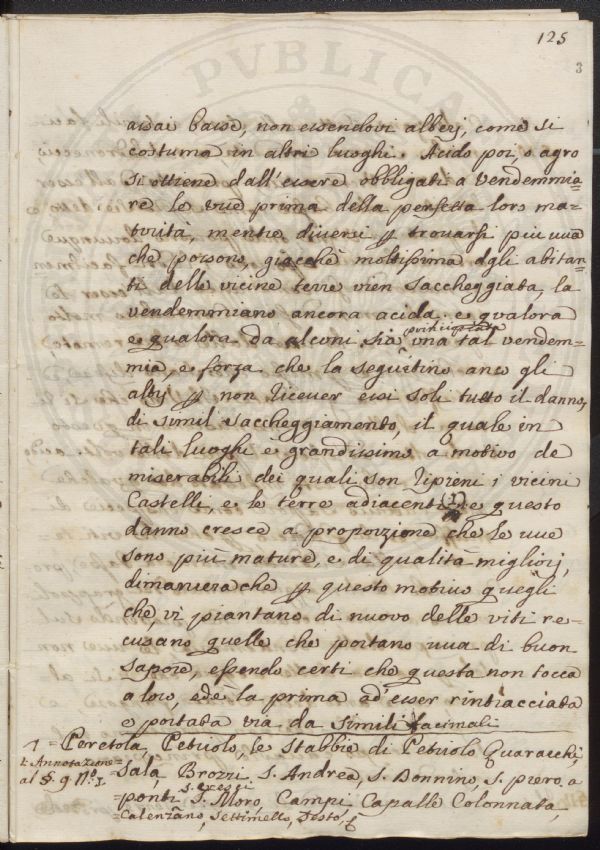 125
3
PVBLICA
assai basse, non essendovi alberj, come si
costuma in altri luoghi. Acido poi, o agro
si ottiene dall'essere obbligati a vendemmia=
re le vue prima della perfetta loro ma=
turità, mentre diversi p trovarsi piu uua
che possono, giacchè moltissima dgli abitan=
ti delle vicine terre vien saccheggiata, la
vendemmiano ancora acida; e qualora
e qualora da alcuni sia principiata una tal vendem=
mia, e forza che la seguitino anco gli
altrj p non ricever essi soli tutto il danno,
di simil saccheggiamento, il quale in
tali luoghi è grandissimo a motivo de
miserabili dei quali son ripieni i vicini
Castelli, e le terre adiacenti (1) e questo
danno cresce a proporzione che le vue
sono più mature, e di qualità migliorj,
dimanierache p questo motivo quegli
che, vi piantano di nuovo delle viti re=
cusano quelle che portano uua di buon
sapore, essendo certi che questa non tocca
a loro, ed è la prima ad'esser rintracciata
e portata via da simili facimali
1 = Peretola, Petriolo, le Stabbie di Petriolo Quaracchi,
1: Annotazione
al §. 9 N.º 1.
= Sala, Brozzi, S. Andrea, S. Donnino, S. Piero a
ponti S. Cresci S. Moro, Campi, Capalle Colonnata,
= Calenzano, Settimello, Sesto,